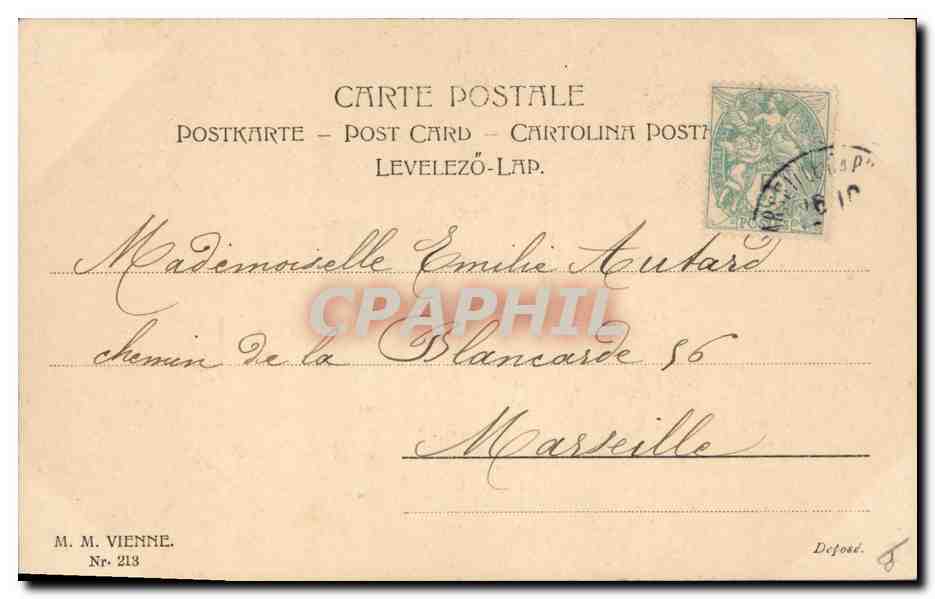 CARTE POSTALE
POSTKARTE – POST CARD – CARTOLINA
LEVELEZŐ-LAP.
Mademoiselle Emilie Autard
CPAPHIL
chemin de la Blancarde 56
Marseille
M. M. VIENNE.
Nr. 213
Deposé.